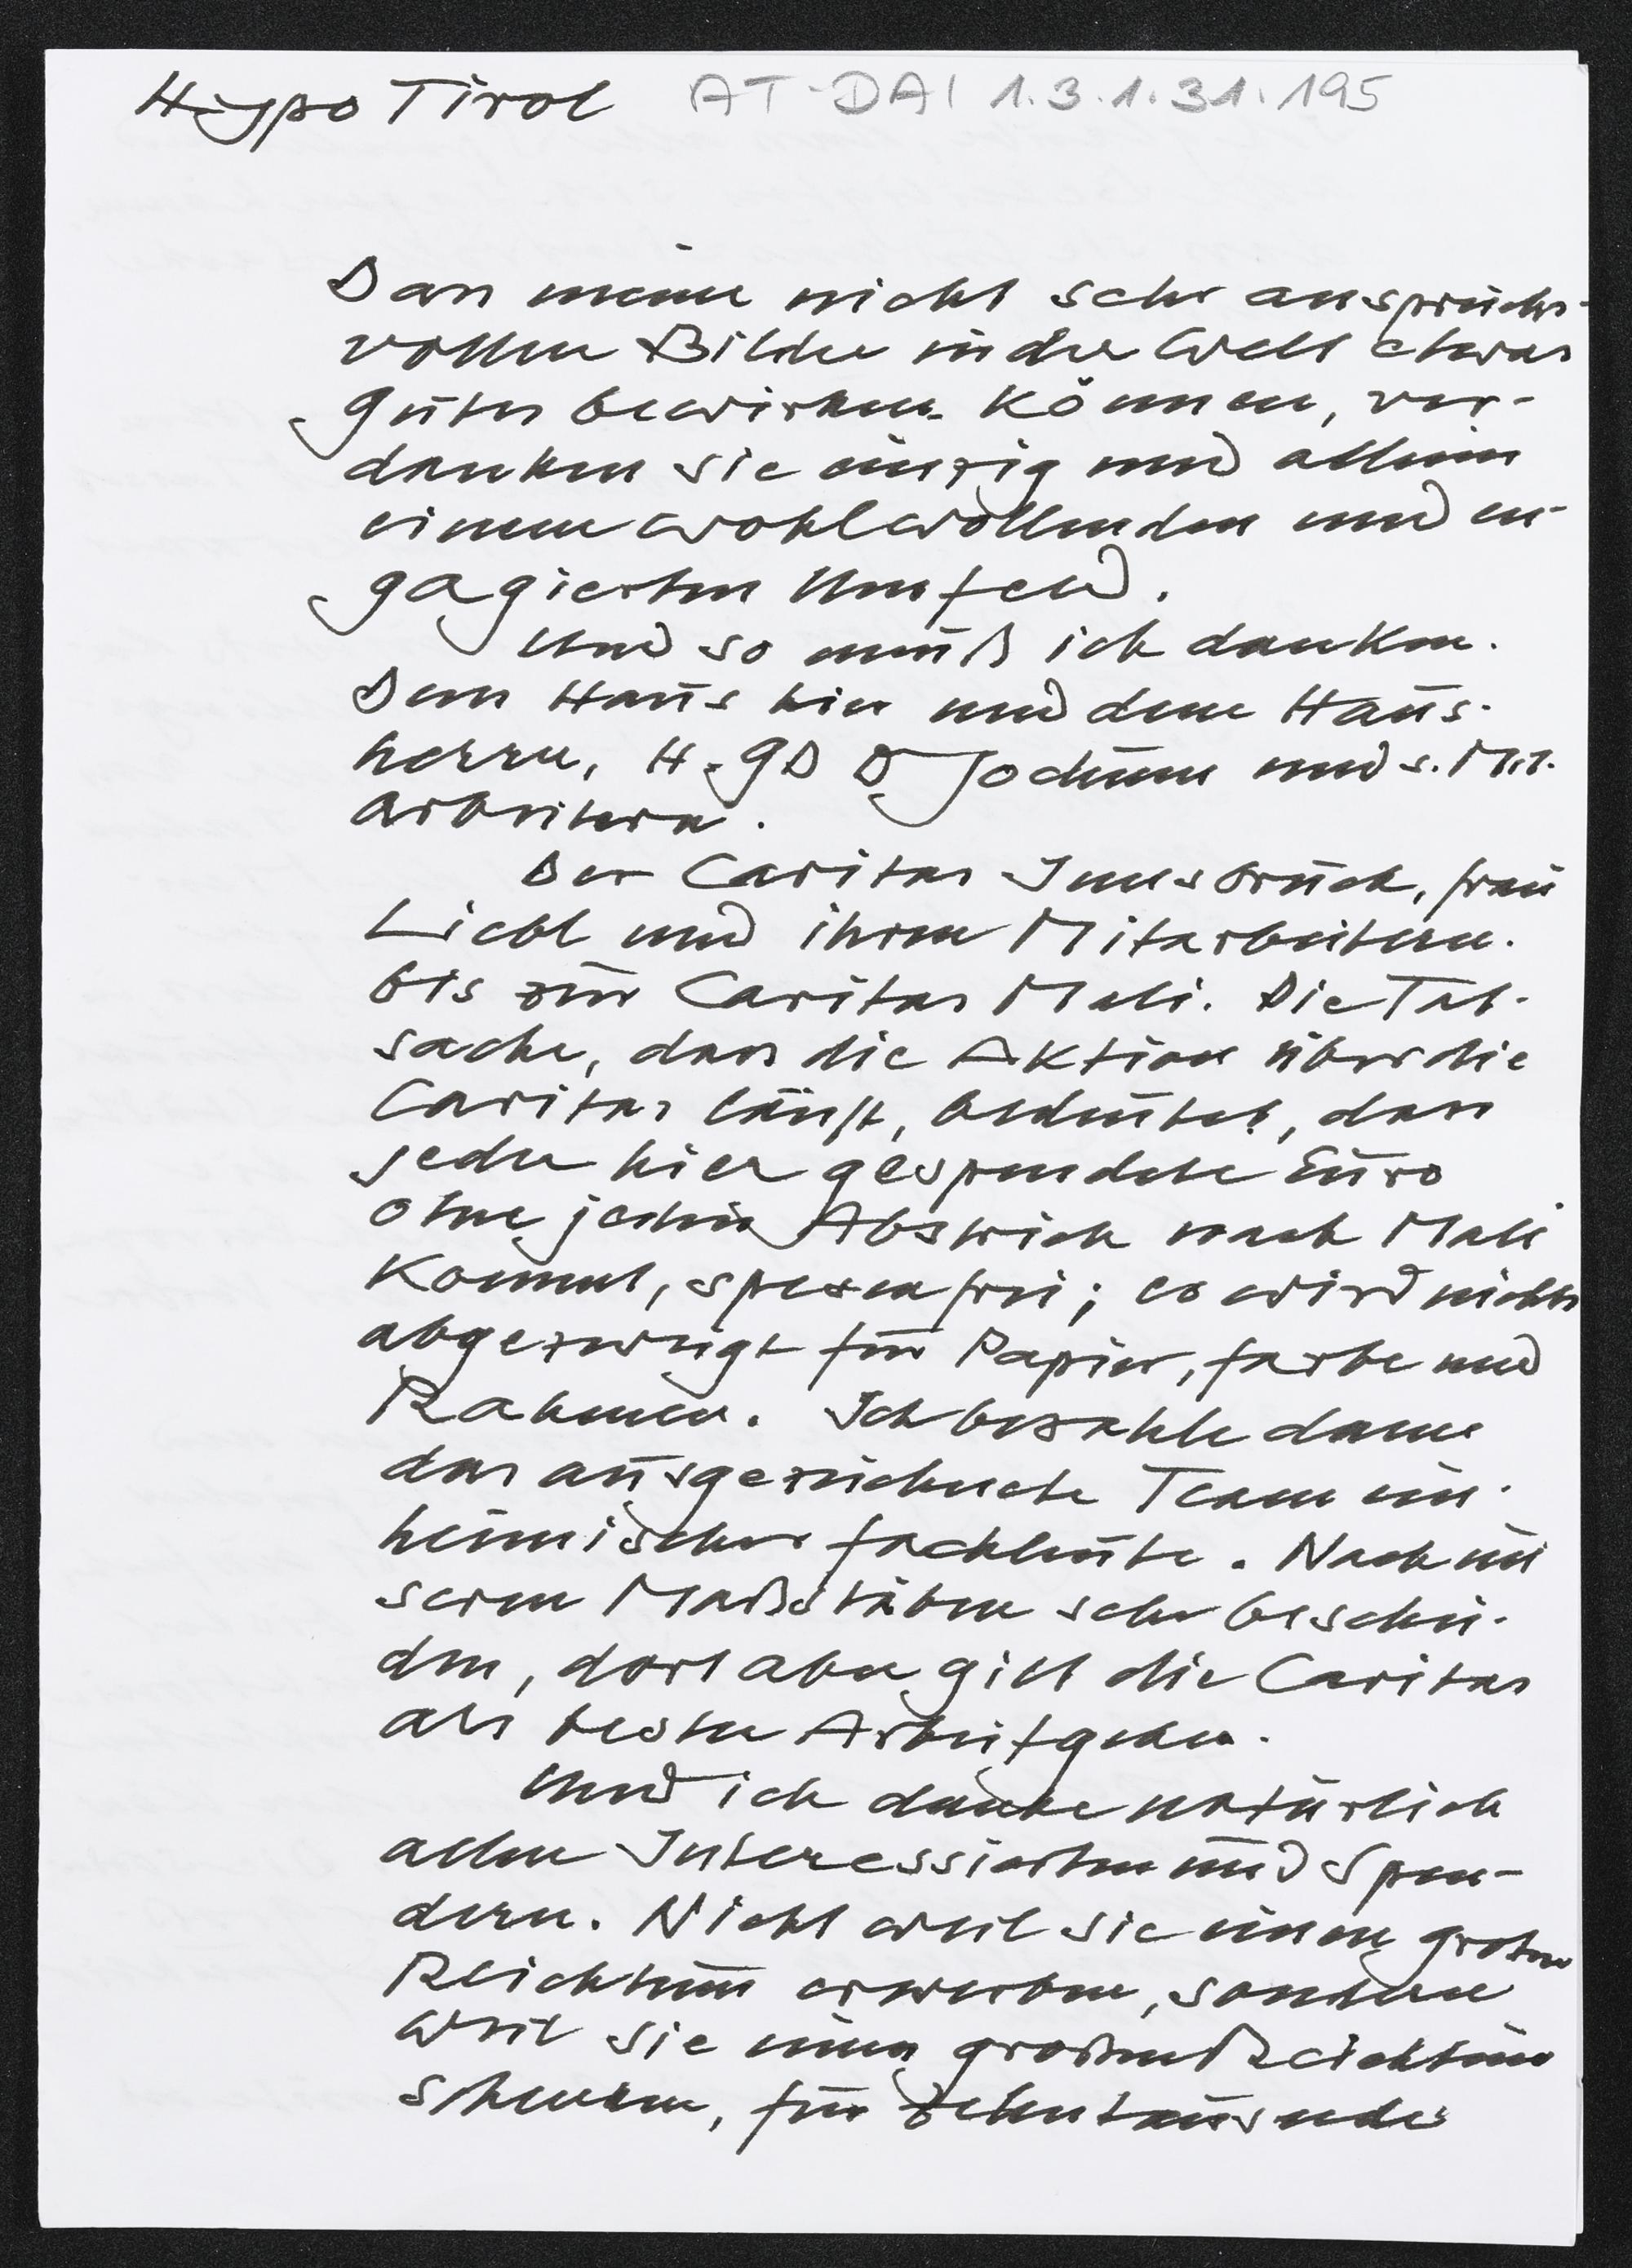 Hypo Tirol AT-DAI 1.3.1.31.195
Dass meine nicht sehr anspruchs-
vollen Bilder in der Welt etwas
Gutes bewirken können, ver-
danken sie einzig und allein
einem wohlwollenden und en-
gagierten Umfeld.
Und so muß ich danken.
Dem Haus hier und dem Haus-
herrn, H. GD D Jochum und s. Mit-
arbeitern.
Der Caritas Innsbruck, Frau
Liebl und ihren Mitarbeitern.
bis zur Caritas Mali. Die Tat-
sache, dass die Aktion über die
Caritas läuft, bedeutet, dass
jeder hier gespendete Euro
ohne jeden Abstrich nach Mali
kommt, spesenfrei; es wird nichts
abgezweigt für Papier, Farbe und
Rahmen. Ich bezahle dann
das ausgezeichnete Team ein-
heimischer Fachleute. Nach un
seren Maßstäben sehr beschei-
den, dort aber gilt die Caritas
als bester Arbeitgeber.
Und ich danke natürlich
allen Interessierten und Spen-
dern. Nicht weil sie einen großen
Reichtum erwerben, sondern
weil sie einen großen Reichtum
schenken, für Zehntausende